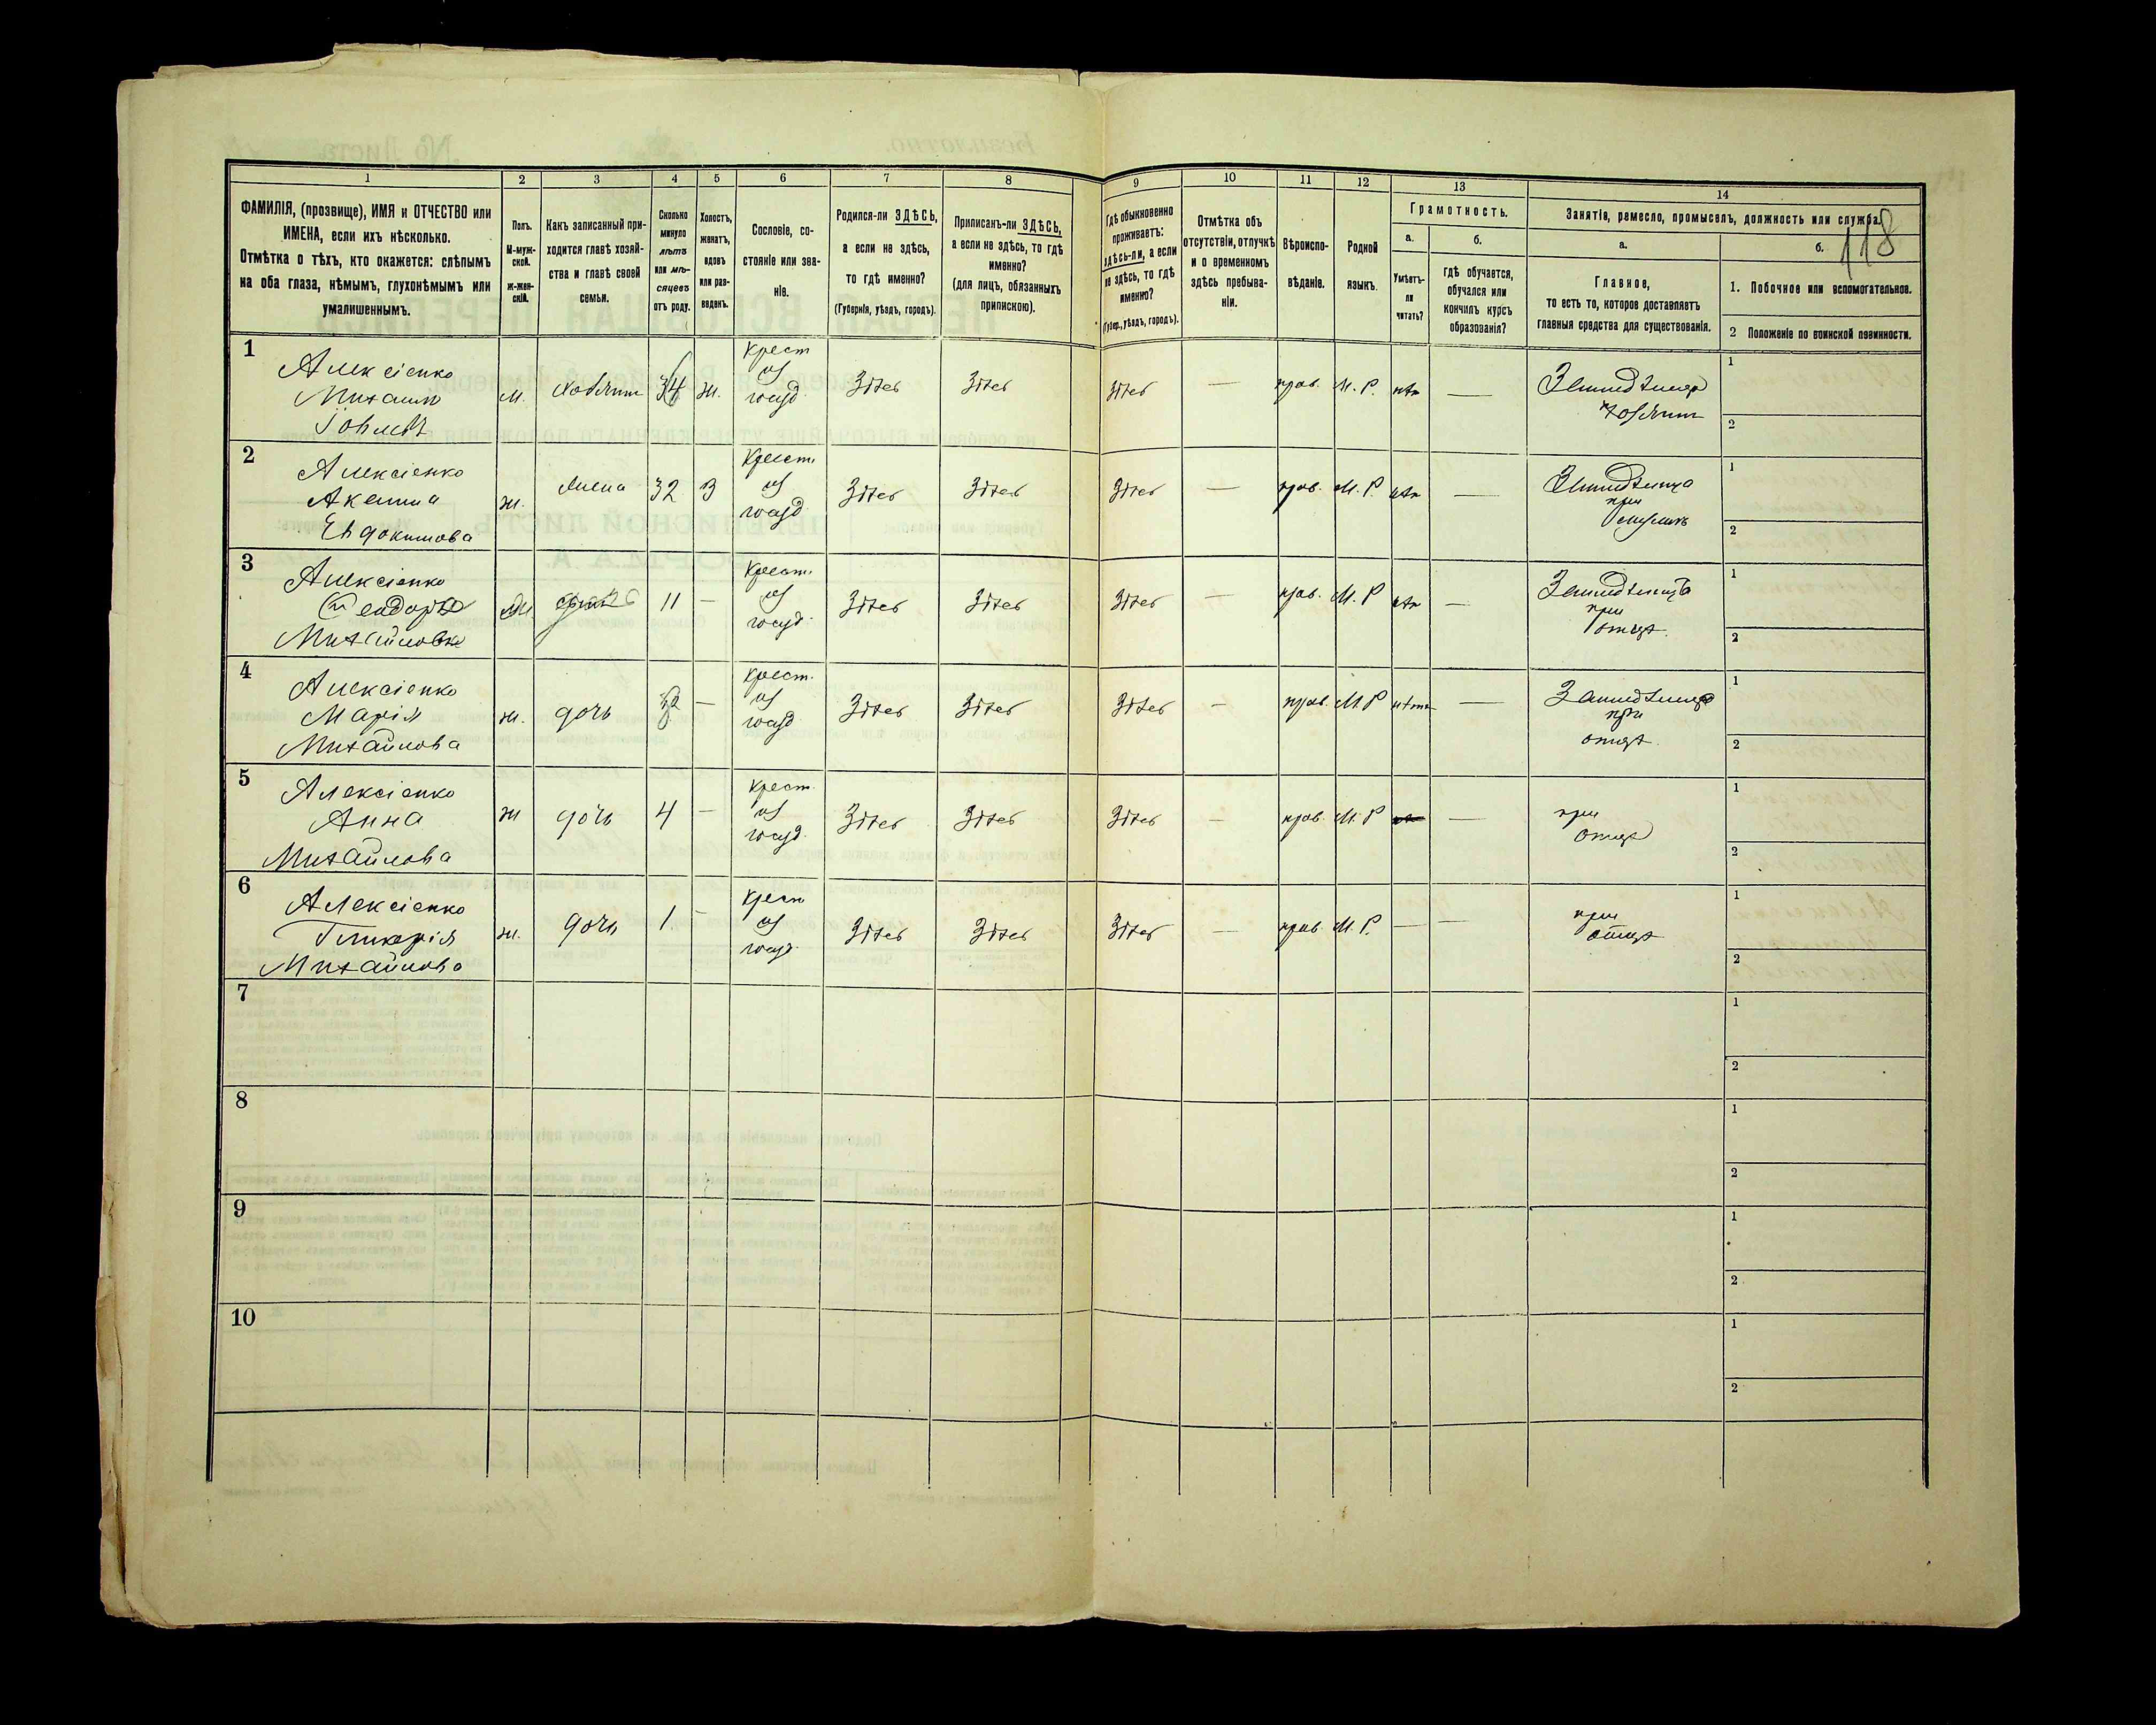 118
1
2
3
4
5
6
7
8
9
10
11
12
13
14
ФАМИЛІЯ, (прозвище), ИМЯ и ОТЧЕСТВО или
ИМЕНА, если ихъ нѣсколько.
Отмѣтка о тѣхъ, кто окажется: слѣпымъ
на оба глаза, нѣмымъ, глухонѣмымъ или
умалишеннымъ.
Полъ.
М-муж-
ской.
ж-жен-
скій.
Какъ записанный при-
ходится главѣ хозяй-
ства и главѣ своей
семьи.
Сколько
минуло
лѣтъ
или мѣ-
сяцевъ
отъ роду.
Холостъ,
женатъ,
вдовъ
или раз-
веденъ.
Сословіе, со-
стояніе или зва-
ніе.
Родился-ли ЗДѢСЬ,
а если не здѣсь,
то гдѣ именно?
(Губернія, уѣздъ, городъ).
Приписанъ-ли ЗДѢСЬ,
а если не здѣсь, то гдѣ
именно?
(для лицъ, обязанныхъ
припискою).
Гдѣ обыкновенно
проживаетъ:
здѣсь-ли, а если
не здѣсь, то гдѣ
именно?
(Губер., уѣздъ, городъ).
Отмѣтка объ
отсутствіи, отлучкѣ
и о временномъ
здѣсь пребыва-
ніи.
Вѣроиспо-
вѣданіе.
Родной
языкъ.
Грамотность.
а.
Умѣетъ-
ли
читать?
б.
гдѣ обучается,
обучался или
кончилъ курсъ
образованія?
Занятіе, ремесло, промыселъ, должность или служба.
а.
Главное,
то есть то, которое доставляетъ
главныя средства для существованія.
б.
1. Побочное или вспомогательное.
2 Положеніе по воинской повинности.
1
Алексіенко
Михаилъ
Іовлевъ
м.
хозяин
ж.
крест
из
госуд.
Здѣсь
Здѣсь
Здѣсь
—
прав.
М. Р.
нѣт
—
хозяин
1
2
2
Алексіенко
Акелина
Евдокимова
ж.
жена
32
З
крест.
из
госуд
Здѣсь
Здѣсь
Здѣсь
—
прав.
М. Р.
нѣт
—
при
1
2
3
Алексіенко
Михайловъ
11
—
крест.
из
госуд.
Здѣсь
Здѣсь
Здѣсь
—
прав.
М. Р
нѣт
—
при
отцѣ.
1
2
4
Алексіенко
Марія
Михайлова
ж.
дочь
—
крест.
из
госуд
Здѣсь
Здѣсь
Здѣсь
—
прав.
М Р
—
при
отцѣ.
1
2
5
Алексіенко
Анна
Михайлова
ж
дочь
4
—
крест.
из
госуд.
Здѣсь
Здѣсь
Здѣсь
—
прав.
М. Р
—
при
отцѣ
1
2
6
Алексіенко
Гликерія
Михайлова
ж.
дочь
1.
—
крест
из
госуд.
Здѣсь
Здѣсь
Здѣсь
—
прав.
М. Р.
—
—
при
отцѣ
1
2
7
1
2
8
1
2
9
1
2
10
1
2